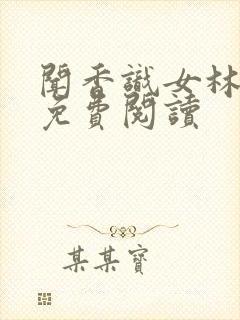 聞香識女林
免費閱讀
某某寶